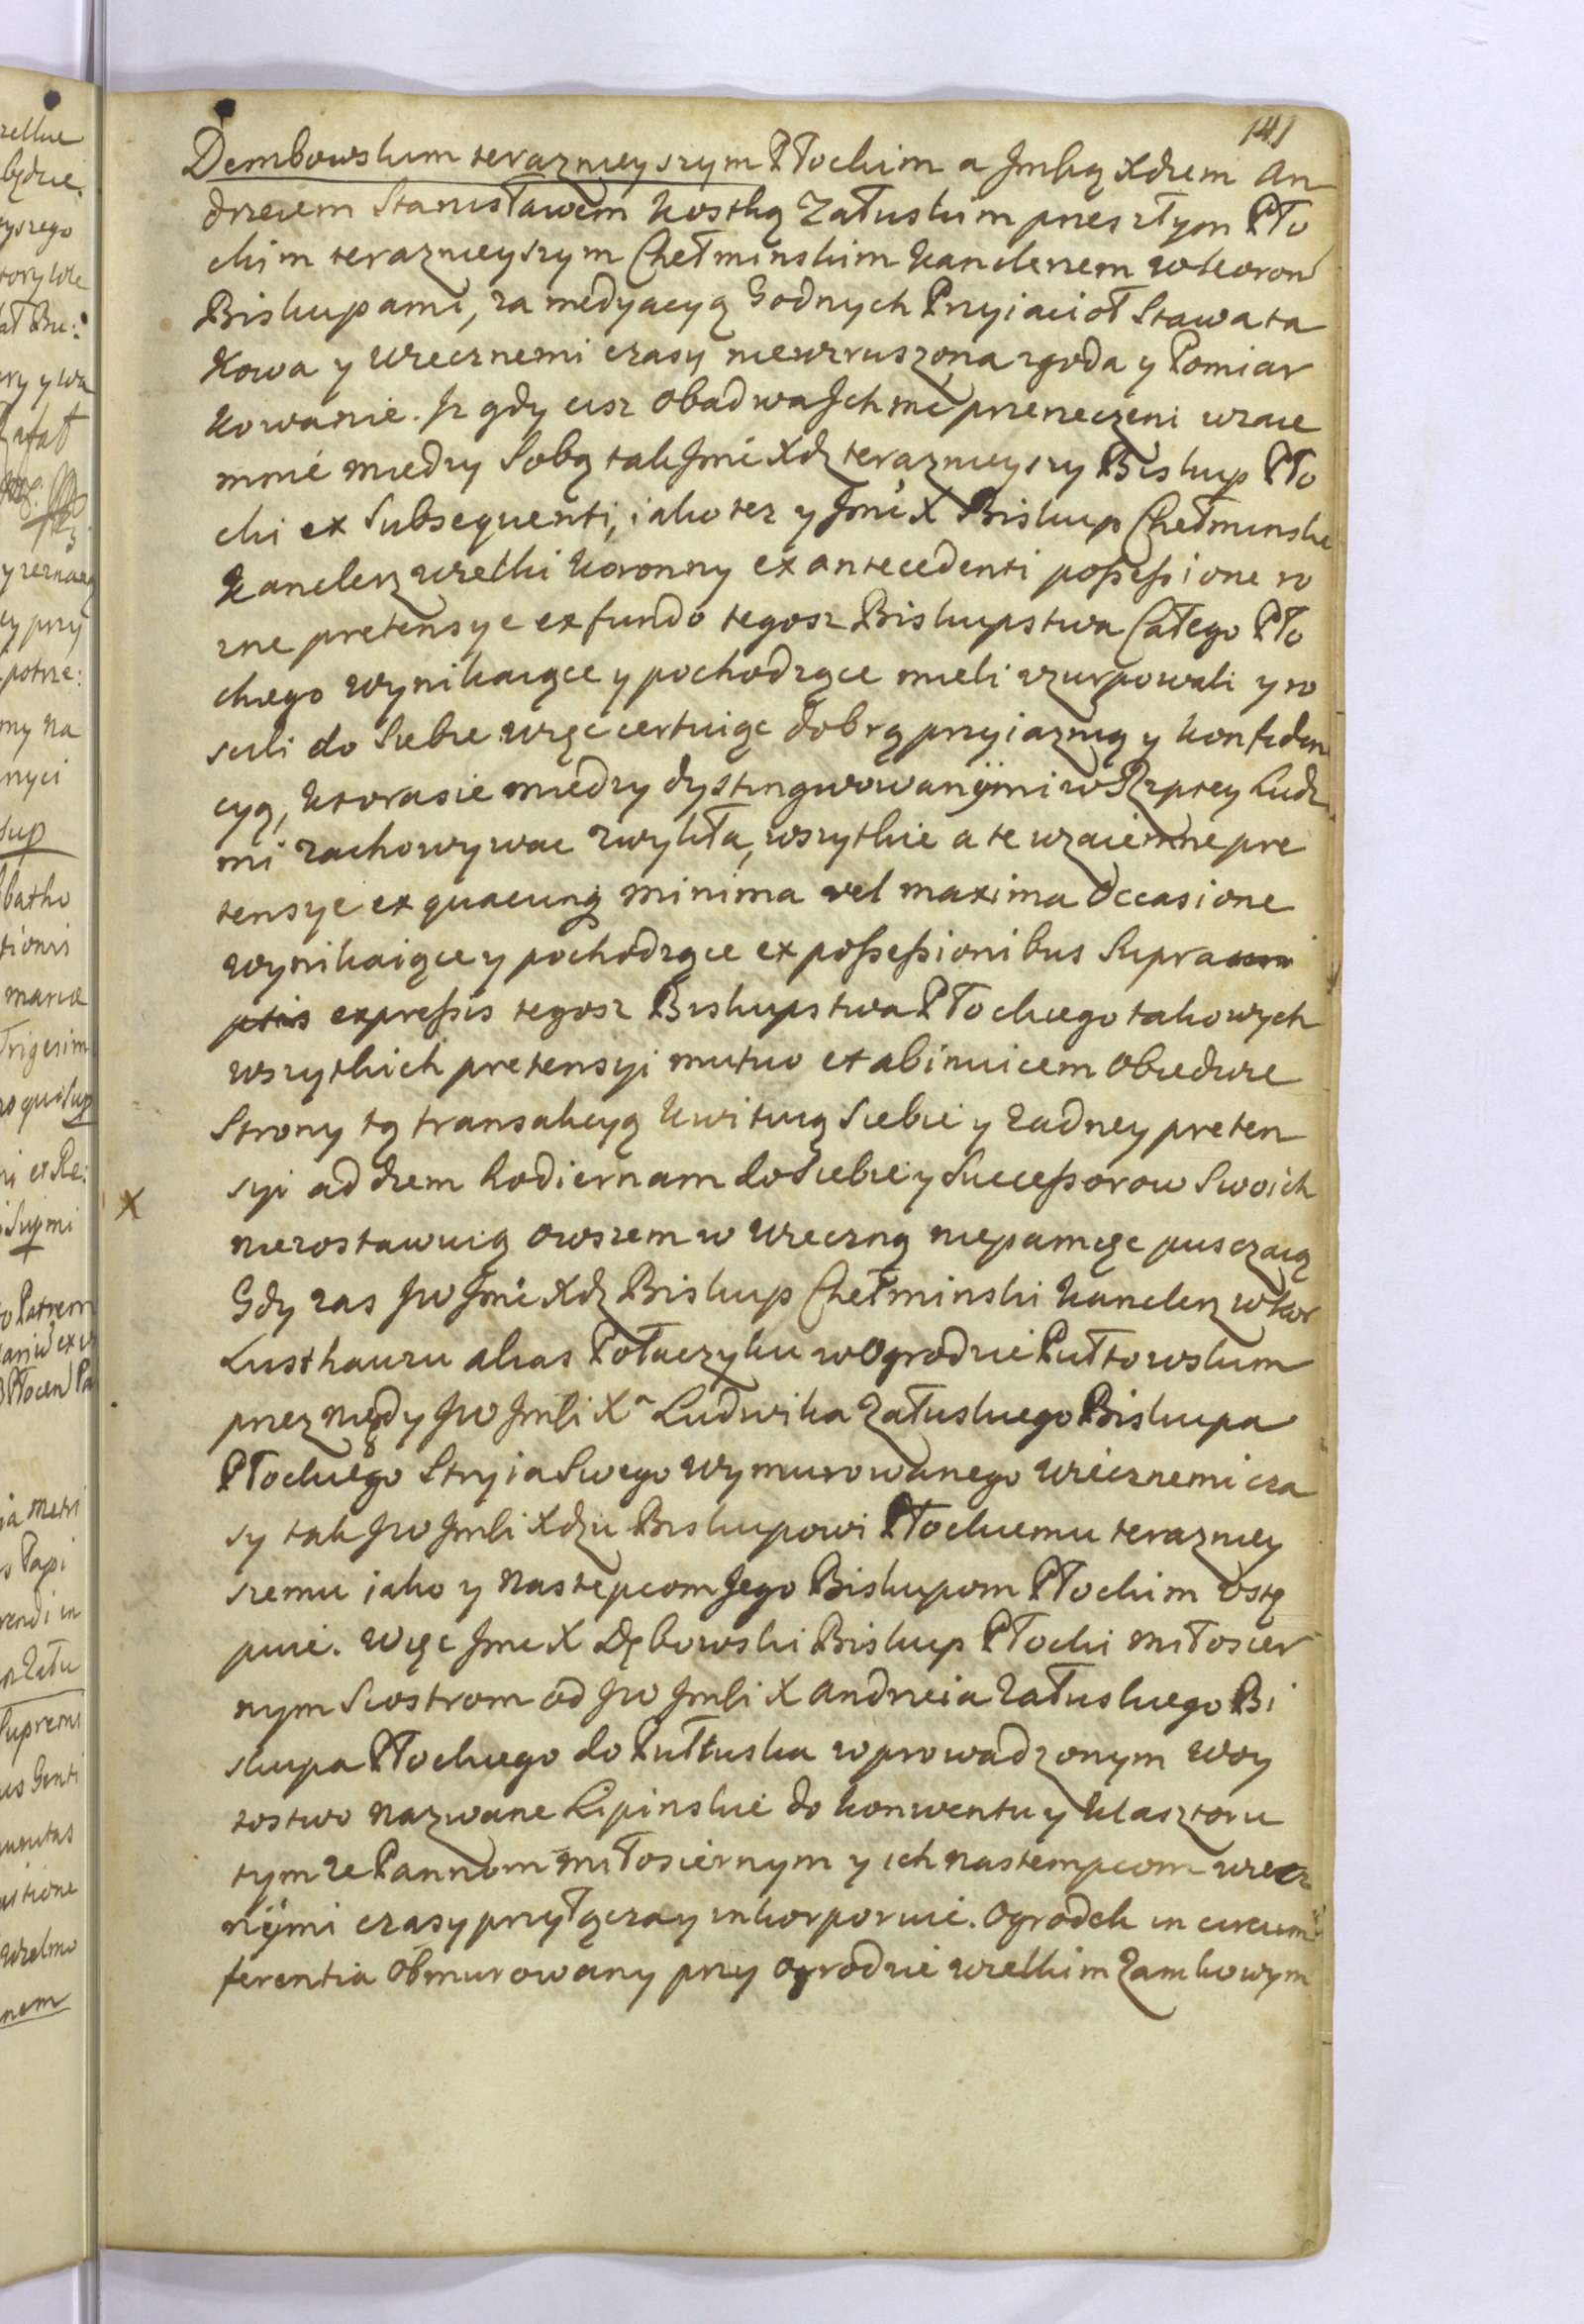 141
Dembowskim teraznieyszym Płockim a Jmścią Xdzem An
drzeiem Stanisławem Kostką Załuskim przeszłym Pło
ckim teraznieyszym Chełminskim Kanclerzem W Koron
Biskupami, za medyacyą Godnych Przyiacioł Stawa ta
kowa y Wiecznemi czasy niewzruszona zgoda y Pomiar
kowanie. Jz gdy cisz Obadwa Jchmć przerzeczeni wzaie
mnie miedzy Sobą tak Jmć Xdz teraznieyszy Biskup Pło
cki ex Subsequenti, iako tez y Jmć X Biskup Chełminski
Kanclerz Wielki Koronny ex antecedenti possessione ro
zne pretensye ex fundo tegosz Biskupstwa Całego Pło
ckiego wynikaiące y pochodzące mieli uzurpowali y ro
scili do Siebie więc certuiąc dobrą przyiaznią y konfiden
cyą, ktora sie miedzy dystyngwowanymi w Rzptey Ludz
mi zachowywac zwykła, wszytkie a te wzaiemne pre
tensye ex quacunq minima vel maxima Occasione
wynikaiące y pochodzące ex possessionibus Supra
expressis tegosz Biskupstwa Płockiego takowych
wszytkich pretensyi mutuo et abinuicem Obiedwie
Strony tą transakcyą kwituią Siebie y zadney preten
syi ad diem hodiernam do Siebie y Successorow Swoich
X
niezostawuią owszem w Wieczną niepamięc pusczaią
Gdy zas JW Jmć Xdz Biskup Chełminski Kanclerz W Kor
Lusthauzu alias Pałaczyku w Ogrodzie Pułtowskim
przez niegdy JW Jmści Xa Ludwika Załuskiego Biskupa
Płockiego Stryia Swego wymurowanego Wiecznemi cza
sy tak JW Jmści Xdzu Biskupowi Płockiemu terazniey
szemu iako y Nastepcom Jego Biskupom Płockim Ustę
puie. Więc Jmć X Dębowski Biskup Płocki Miłosier
nym Siostrom od JW Jmści X Andrzeia Załuskiego Bi
skupa Płockiego do Pułtuska wprowadzonym Woy
tostwo nazwane Lipinskie do Konwentu y Klasztoru
tymze Pannom Miłosiernym y ich nastempcom wiecz
nymi czasy przyłącza y inkorporuie. Ogrodek in circum
ferentia Obmurowany przy Ogrodzie wielkim Zamkowym